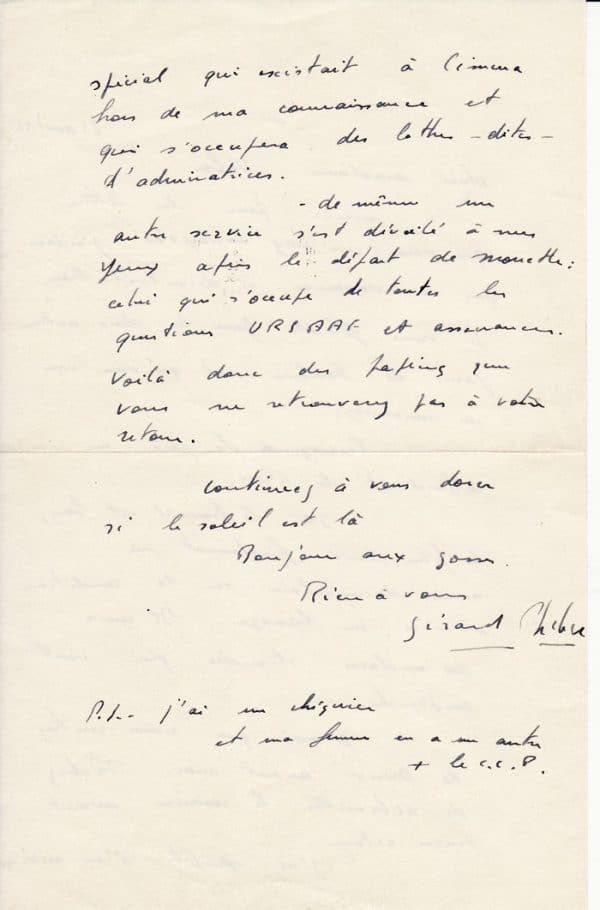 spécial qui existait à Cimura
hors de ma connaissance et
qui s'occupera des lettres - dites -
d'admiratrices.
- de même un
autre service s'est dévoilé à nos
yeux après le départ de Mouette :
celui qui s'occupe de toutes les
questions URSAAF et assurances.
Voilà donc des papiers que
vous ne retrouverez pas à votre
retour.
continuez à vous dorer
si le soleil est là
Bonjour aux gosses.
Bien à vous
Gérard Philipe
P.S.- j'ai un chéquier
et ma femme en a un autre
+ le c.c.P.